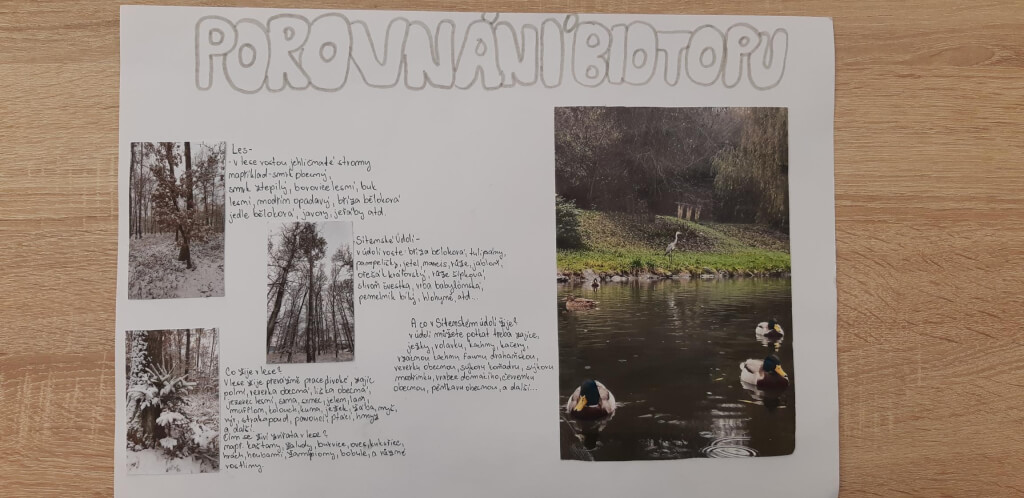 POROVNÁNÍ BIOTOPU
Les-
- v lese rostou jehličnaté stromy
například-smrk obecný,
smrk ztepilý, borovice lesní, buk
lesní, modřín opadavý, bříza bělokorá
jedle bělokorá, javory, jeřáby atd.
Sítenské údolí-
v údolí roste bříza bělokorá, tulipány,
pampelišky, jetel, narcis, růže, jabloň,
ořešák královský, růže šípková,
slivoň švestka, vrba babylónská,
pemelník bílý, hlohyně, atd...
A co v Sítenském údolí žije?
v údolí můžete potkat třeba zajíce,
ježky, volavku, kachny, kačery,
vzácnou kachnu
veverku obecnou, sýkoru koňadru, sýkoru
modřinku, vrabce domácího, červenku
obecnou, pěnkavu obecnou, a další...
Co žije v lese?
V lese žije převážně prase divoké, zajíc
polní, veverka obecná, liška obecná,
jezevec lesní, srna, srnec, jelen, laň,
mufflon, kolouch, kuna, ježek, žába, myš,
výr, strakapoud, pavouci, ptáci, hmyz
a další.
Čím se živí zvířata v lese?
např. kaštany, žaludy, bukvice, oves, kukuřice,
hrách, houbami, žampiony, bobule, a různé
rostliny.